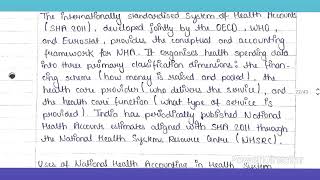 The internationally standardised System of Health Accounts
(SHA 2011), developed jointly by the OECD, WHO,
and Eurostat, provides the conceptual and accounting
framework for NHA. It organises health spending data
into three primary classification dimensions: the finan-
cing scheme (how money is raised and pooled), the
health care provider (who delivers the service), and
the health care function (what type of service is
provided). India has periodically published National
Health Accounts estimates aligned with SHA 2011 through
the National Health Systems Resource Centre (NHSRC).
Uses of National Health Accounting in Health System